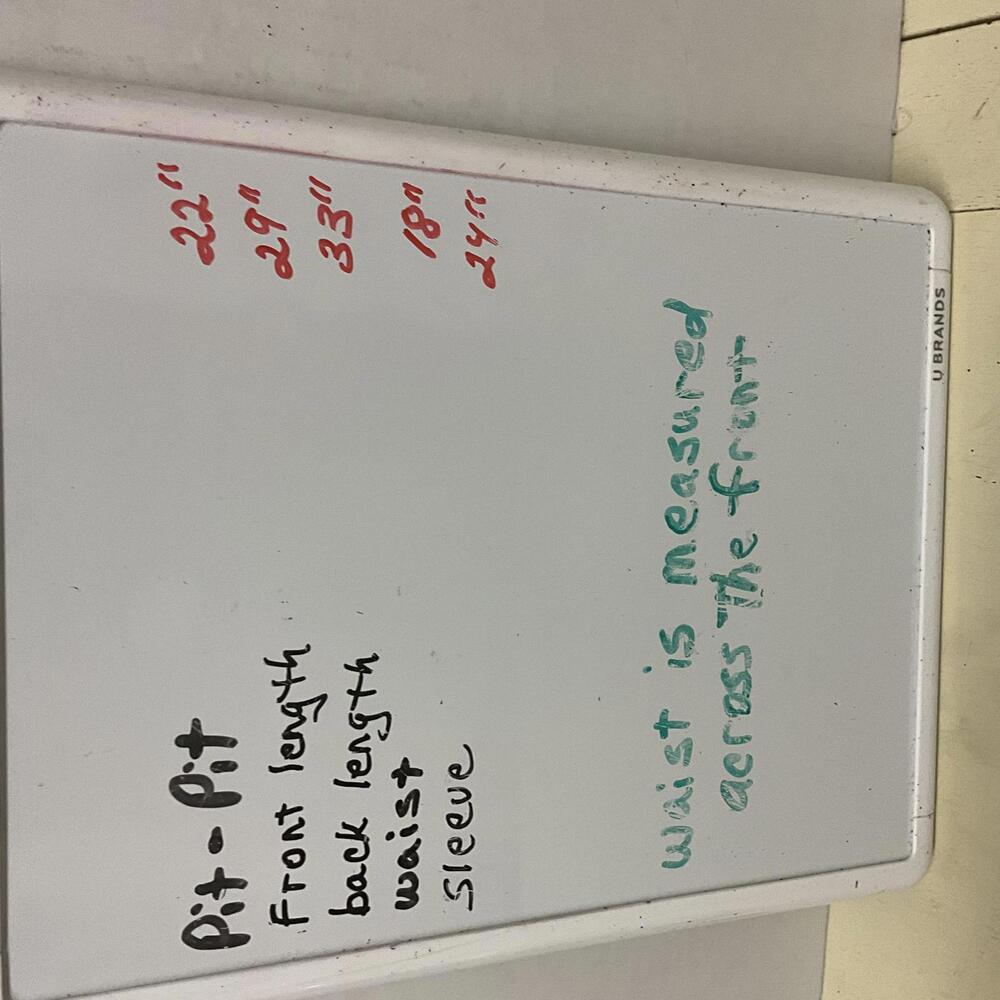 Pit - Pit 22"
Front length 29"
back length 33"
waist 18"
sleeve 24"
waist is measured
across the front
U BRANDS